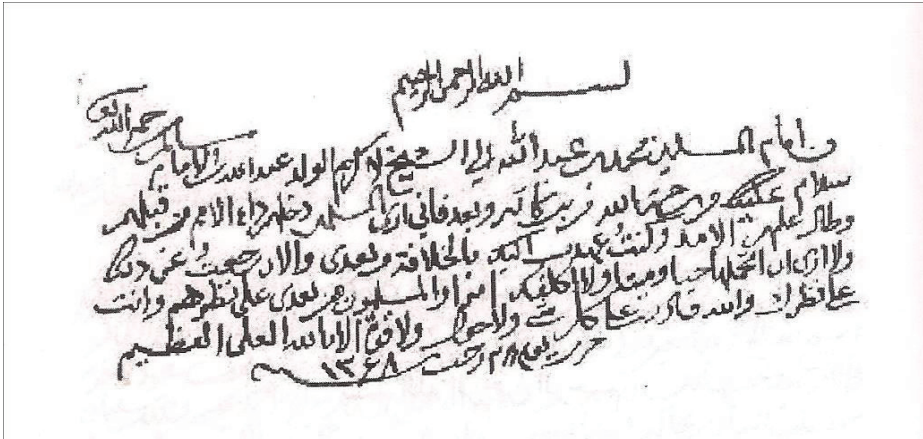 بسم الله الرحمن الرحيم
من امام المسلمين محمد بن عبدالله الى الشيخ الكريم الولد عبدالله بن الامام سالم رحمه الله
سلام عليك ورحمة الله وبركاته وبعد فاني ارى المسلمين دخلهم داء الامم من قبلهم
وطال عليهم الامد وكنت عهدت اليك بالخلافة من بعدي والان رجعت عن ذلك
ولا ارى ان اتحملها حيا وميتا ولا اكلفك اياها والمسلمون من بعدي على نظرهم وانت
على نظرك والله قادر على كل شيء ولا حول ولا قوة الا بالله العلي العظيم
حرر يوم رجب ١٣٦٨